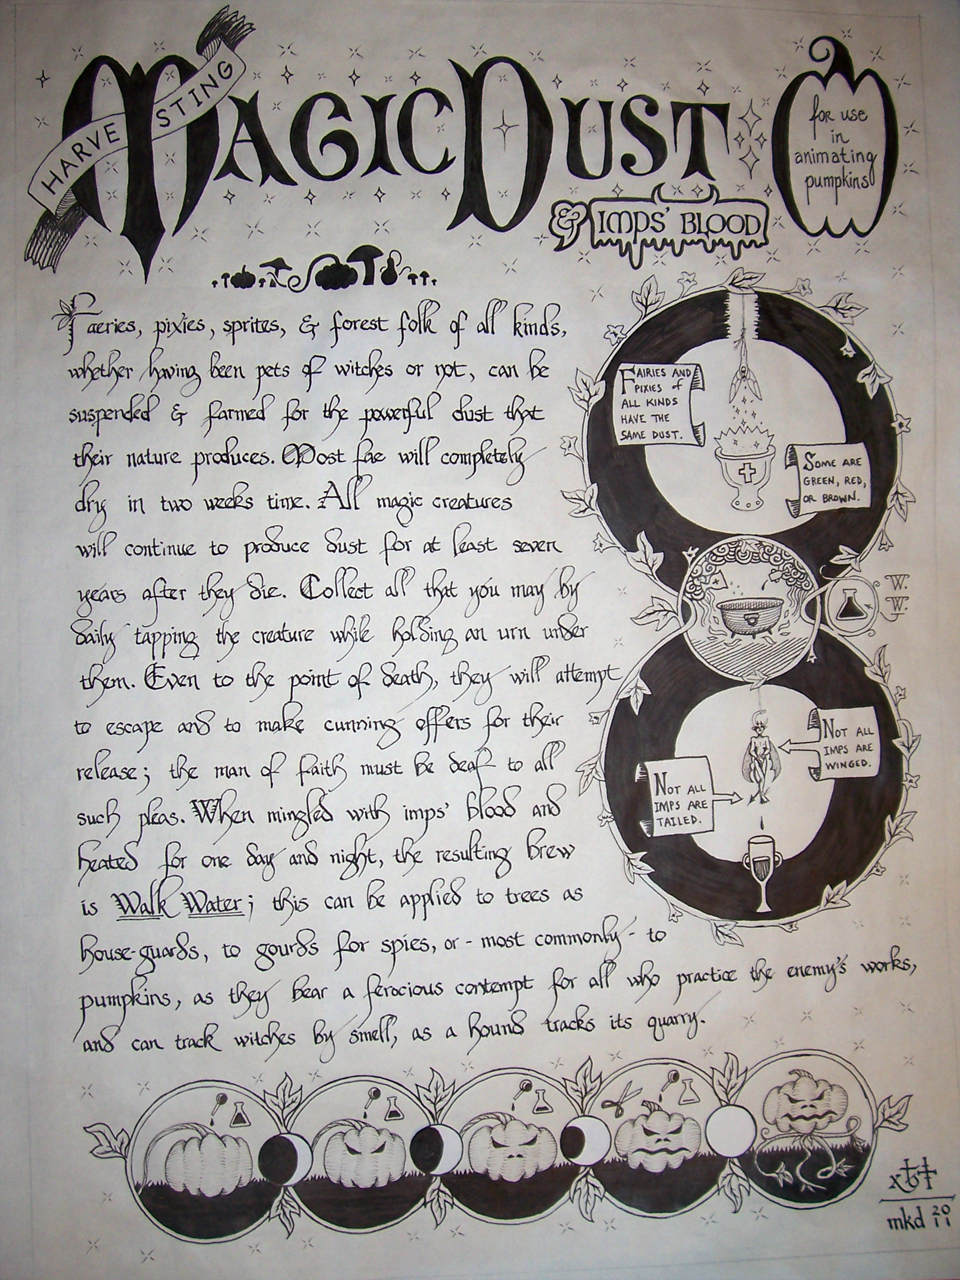 HARVESTING
MAGIC DUST
& IMPS' BLOOD
for use
in
animating
pumpkins
Faeries, pixies, sprites, & forest folk of all kinds,
whether having been pets of witches or not, can be
suspended & farmed for the powerful dust that
their nature produces. Most fae will completely
dry in two weeks time. All magic creatures
will continue to produce dust for at least seven
years after they die. Collect all that you may by
daily tapping the creature while holding an urn under
them. Even to the point of death, they will attempt
to escape and to make cunning offers for their
release; the man of faith must be deaf to all
such pleas. When mingled with imps' blood and
heated for one day and night, the resulting brew
is Walk Water; this can be applied to trees as
house-guards, to gourds for spies, or - most commonly - to
pumpkins, as they bear a ferocious contempt for all who practice the enemy's works,
and can track witches by smell, as a hound tracks its quarry.
FAIRIES AND
PIXIES of
ALL KINDS
HAVE THE
SAME DUST.
SOME ARE
GREEN, RED,
OR BROWN.
W.
W.
NOT ALL
IMPS ARE
WINGED.
NOT ALL
IMPS ARE
TAILED.
mkd 2011